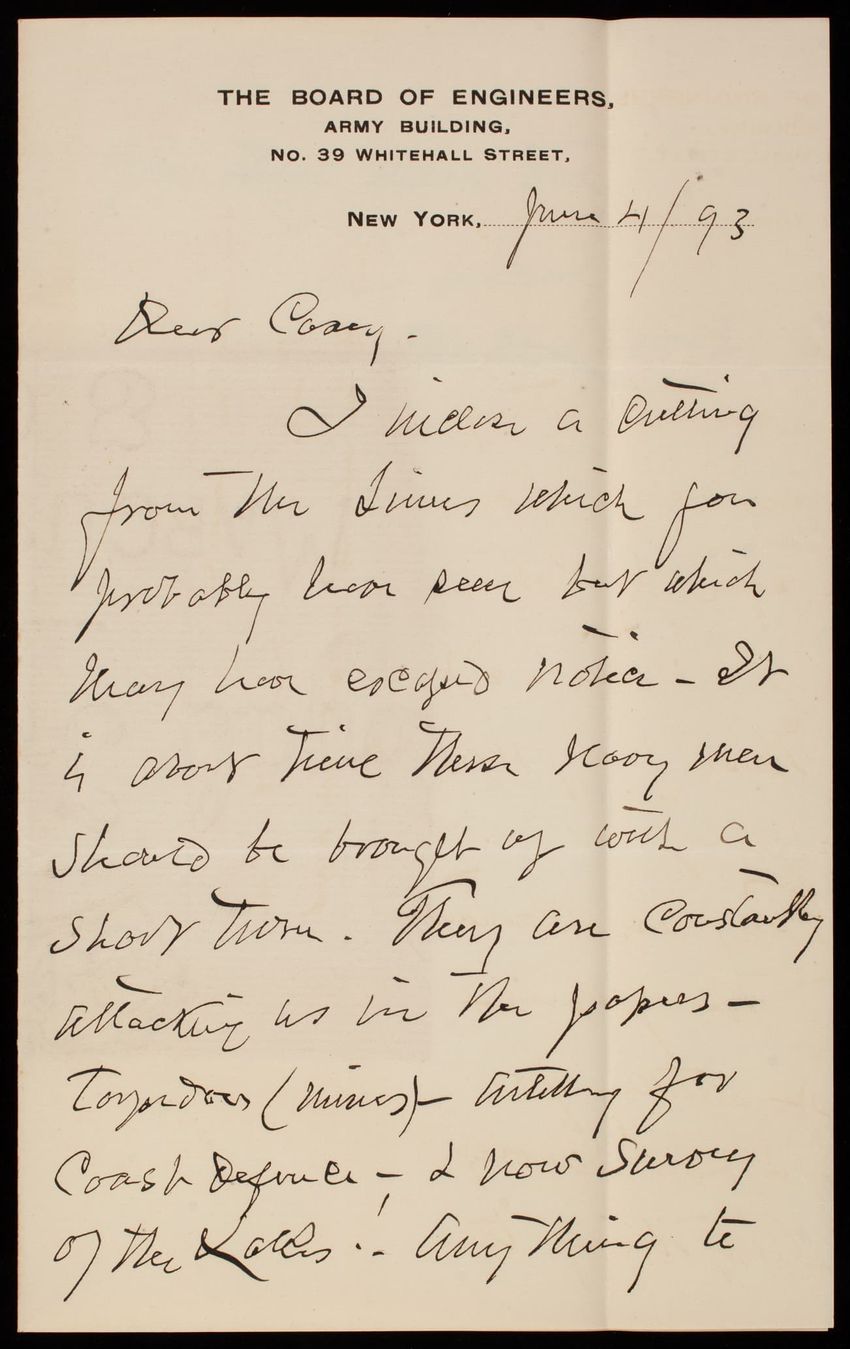 THE BOARD OF ENGINEERS,
ARMY BUILDING,
NO. 39 WHITEHALL STREET,
NEW YORK, June 4/93
Dear Casey.
I inclose a cutting
from the Times which you
probably have seen but which
may have escaped notice - It
is about time these Navy men
should be brought up with a
short turn. They are constantly
attacking us in the papers -
Torpedoes (mines) - Artillery for
Coast Defence - & now Survey
of the Lakes! - Anything to